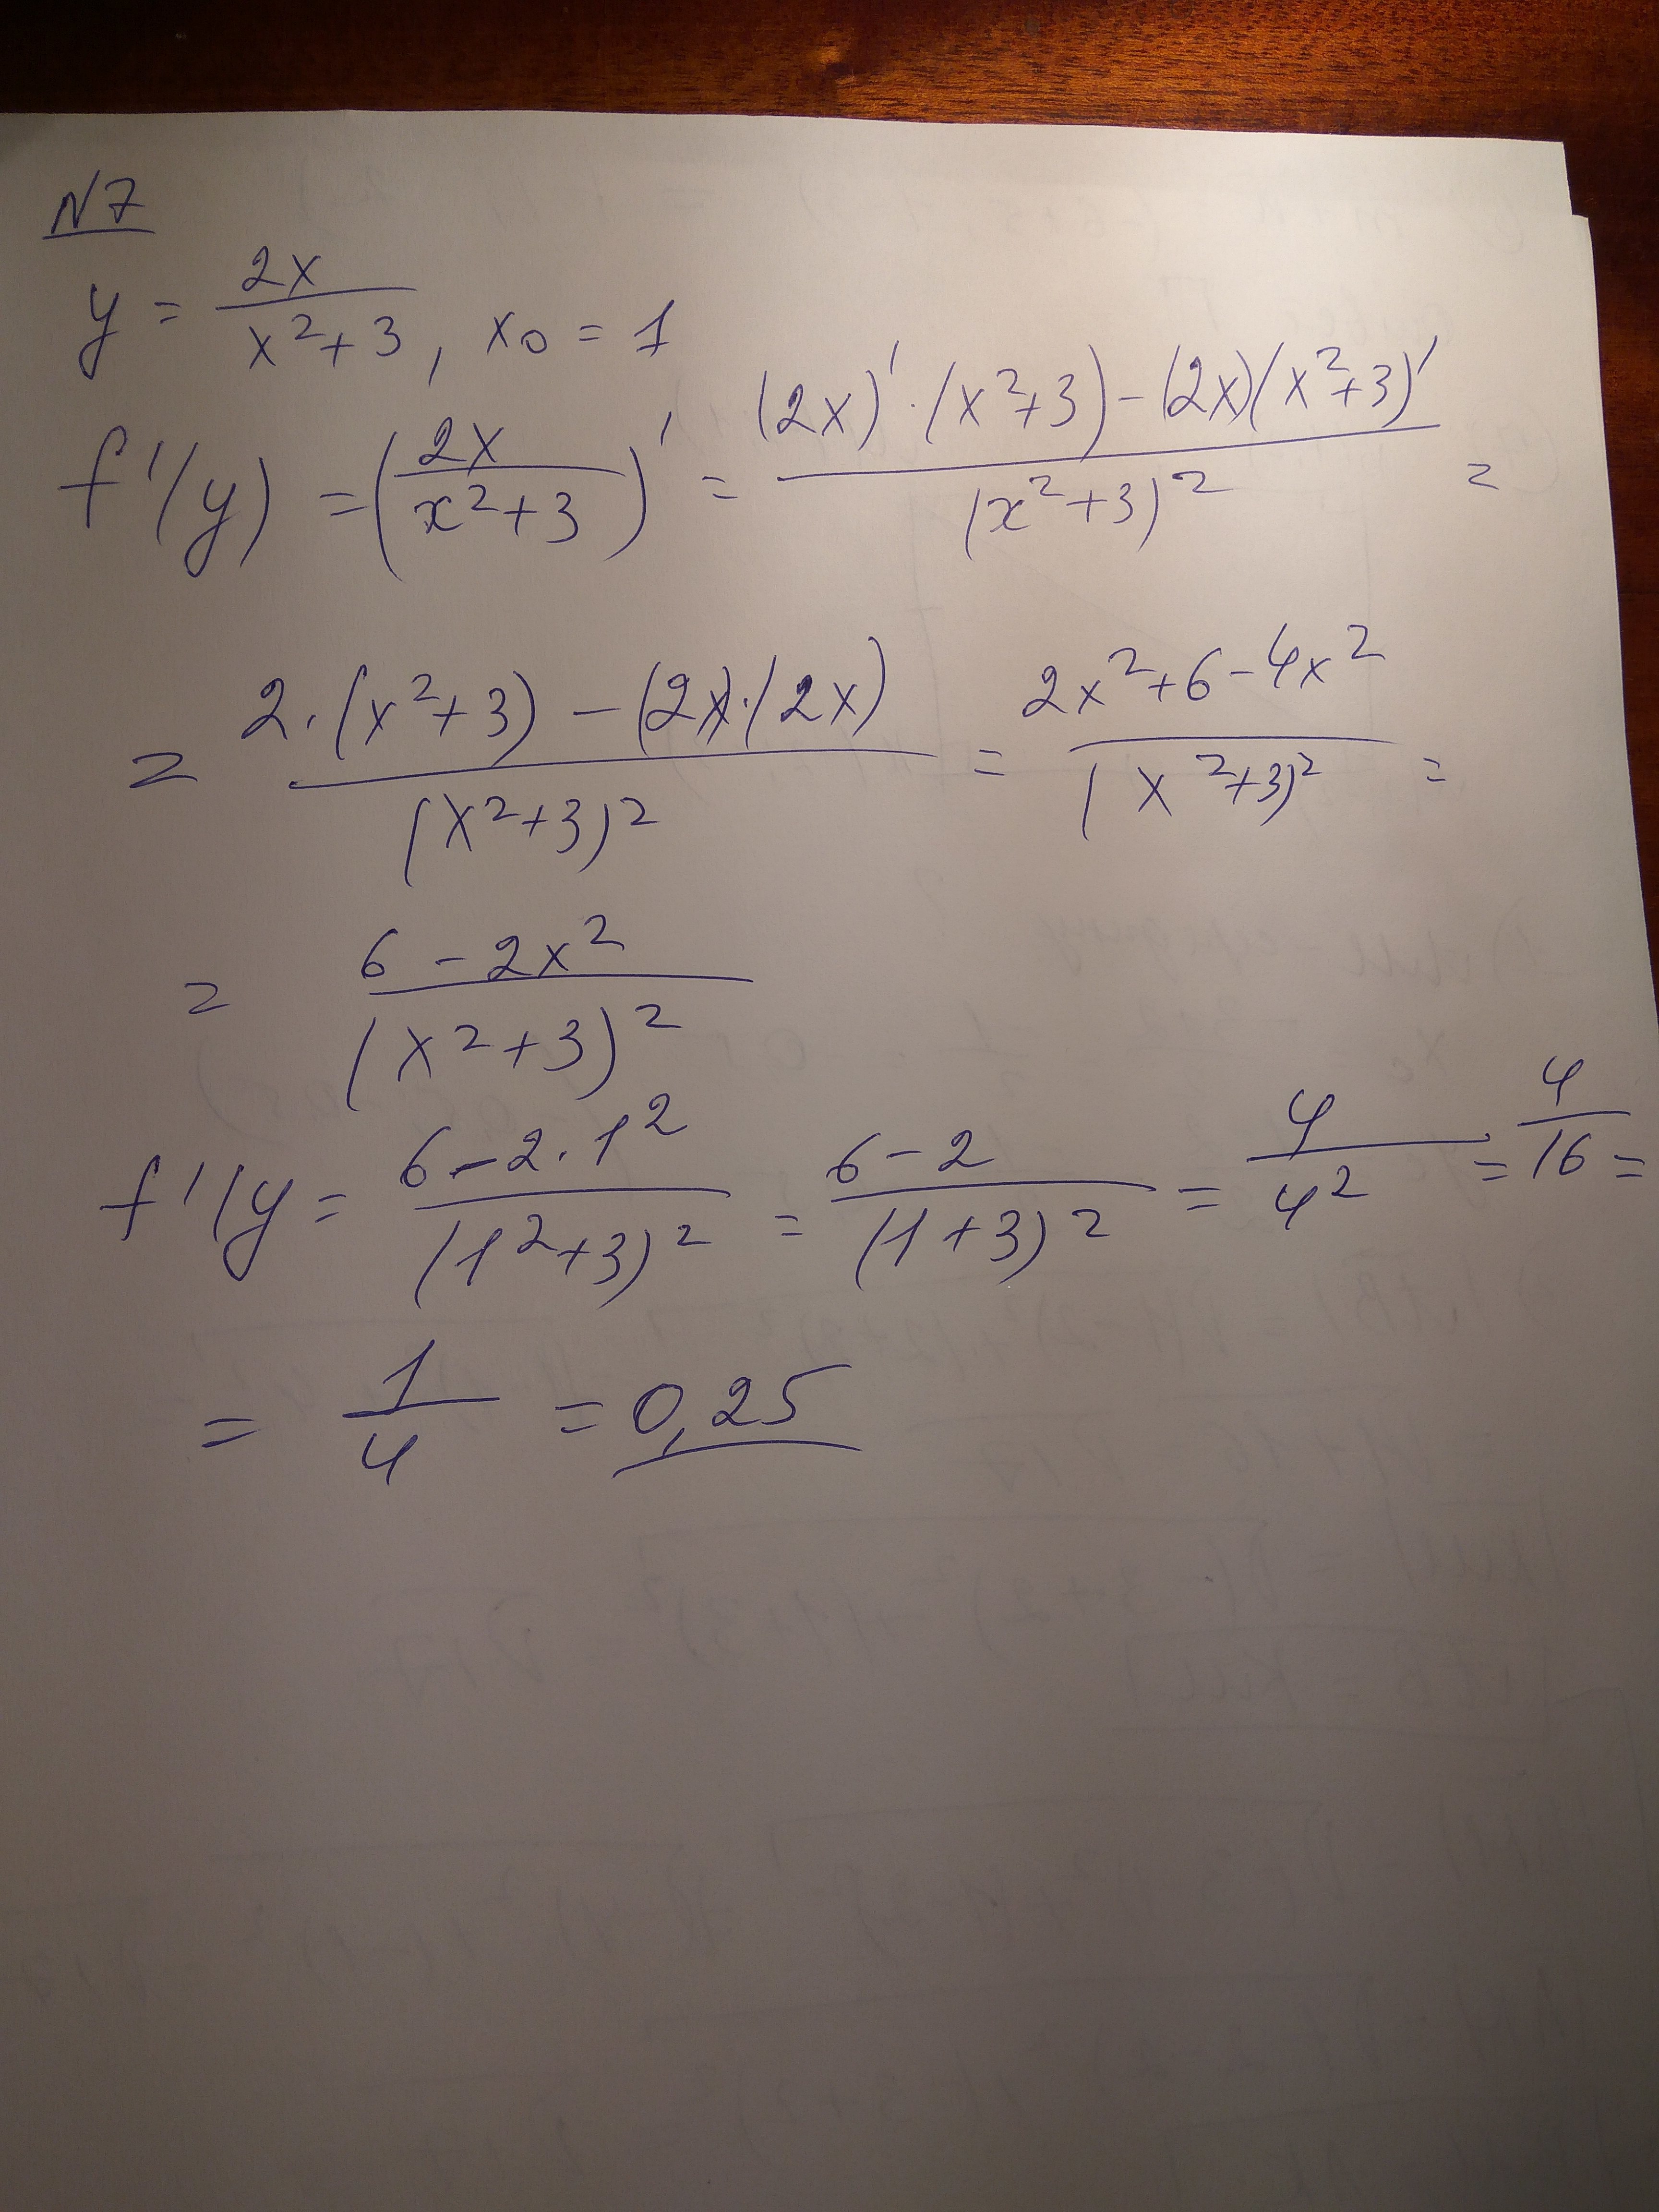 N7
y = 2x / x²+3, x₀ = 1
f'(y) = (2x / x²+3)' = (2x)'·(x²+3)-(2x)(x²+3)' / (x²+3)² =
= 2·(x²+3)-(2x)·(2x) / (x²+3)² = 2x²+6-4x² / (x²+3)² =
= 6-2x² / (x²+3)²
f'(y = 6-2·1² / (1²+3)² = 6-2 / (1+3)² = 4 / 4² = 4 / 16 =
= 1 / 4 = 0,25